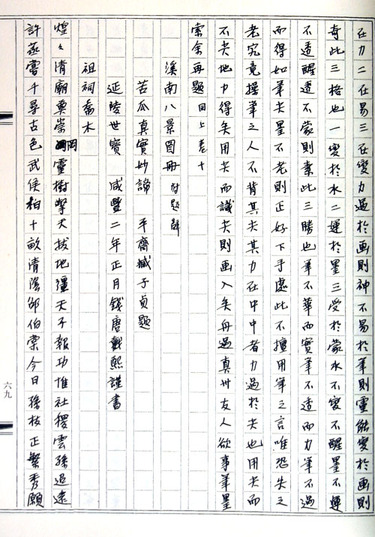 在力二在易三在變力過於画則神不易於筆則靈能變於画則
奇此三格也一變於水二運於墨三受於蒙水不變不醒墨不運
不透醒透不蒙則素此三勝也筆不華而實筆不透而力筆不過
而得如筆尖墨不老則正好下手處此不擅用筆之言唯恐失之
老究竟操筆之人不背其尖其力在中中者力過於尖也用尖而
不尖地力得矣用尖而識尖則画入矣再過真州友人欲事筆墨
索余再題 同上卷十
溪南八景圖冊 附題辭
苦瓜真實妙諦 平齋臧子貞題
延陵世寶 咸豐二年正月錢唐戴熙謹書
祖祠喬木
煌々清廟奠崇岡靈樹擎天拔地彊天子報功惟社稷雲孫追遠
許蒸嘗千尋古色武侯柏十畝清陰邵伯棠今日孫枝正繁秀願
六九